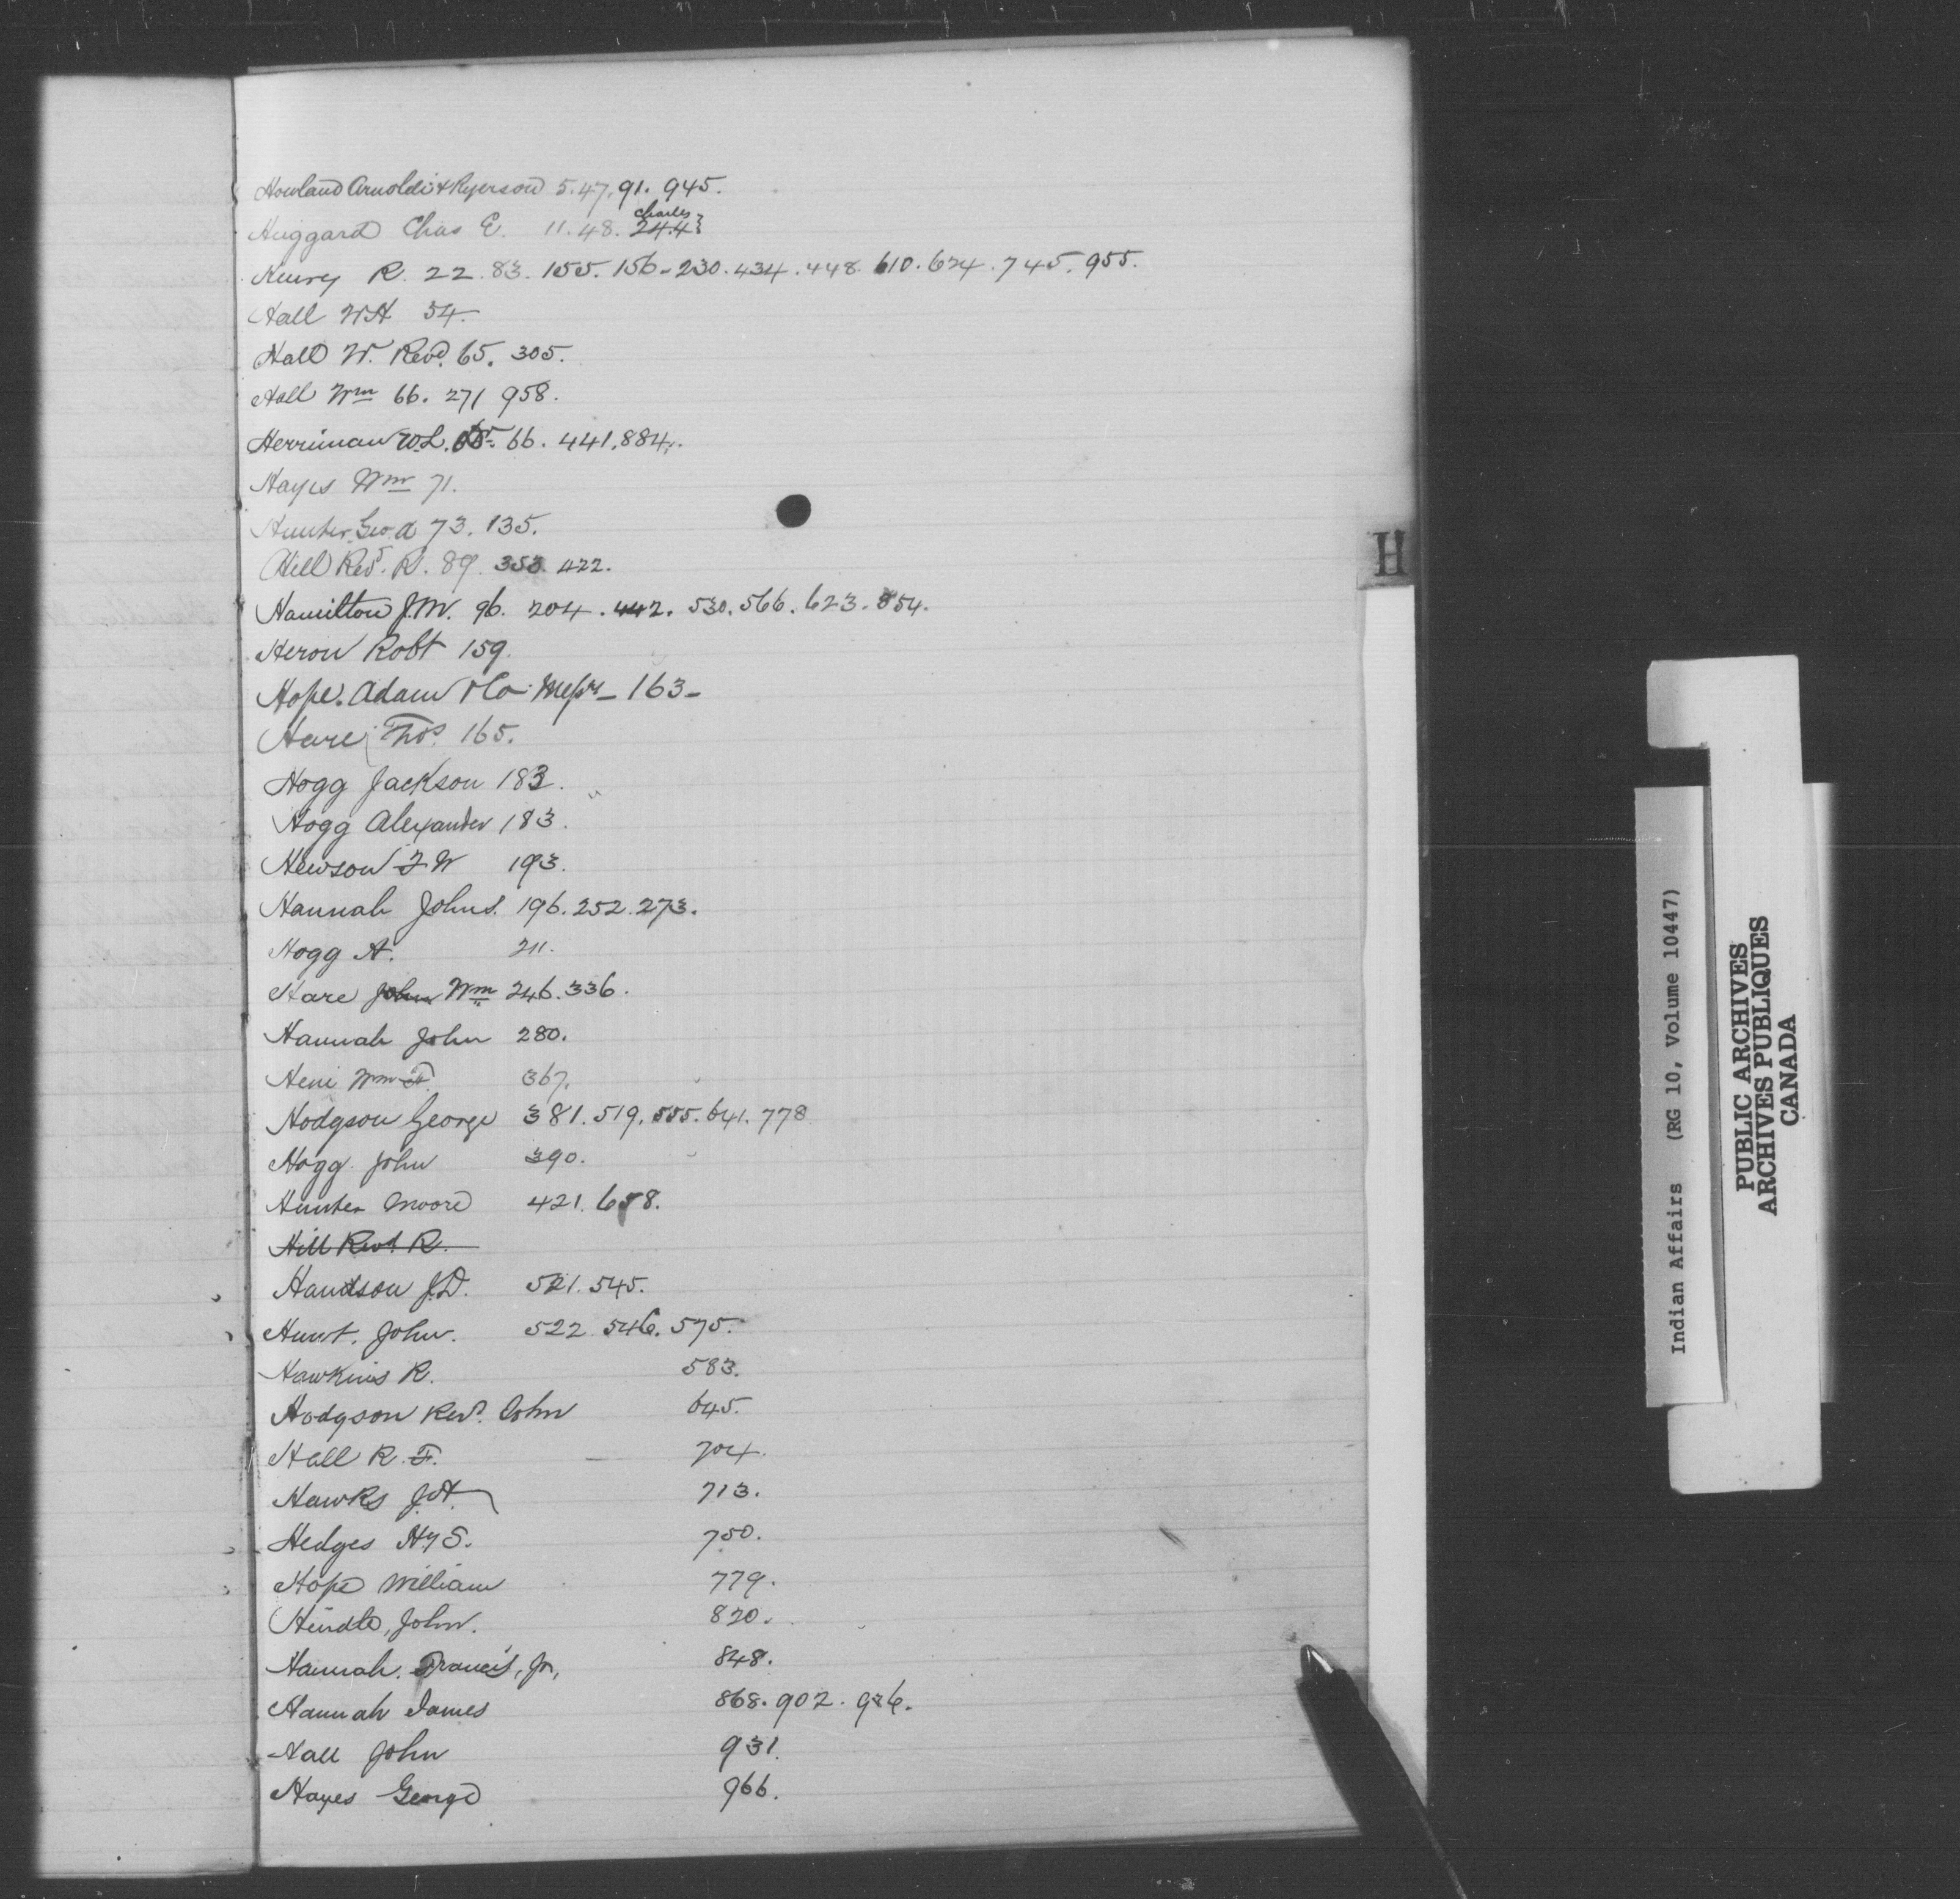 Howland Arnoldi & Ryerson 5. 47. 91. 945.
Huggard Chas E. 11. 48. 244 Charles
Henry R. 22. 83. 155. 156 - 230. 434. 448. 610. 674. 745. 955.
Hall W H 54.
Hall W. Revd. 65. 305.
Hall Wm 66. 271 958.
Herriman W. L. 66. 441. 884.
Hayes Wm 71.
Hunter Geo. A 73. 135.
Hill Revd. R. 89. 353. 422.
Hamilton J. M. 96. 204. 442. 530. 566. 623. 854.
Heron Robt 159.
Hope. Adam & Co. Messrs - 163 -
Hare Thos. 165.
Hogg Jackson 183.
Hogg Alexander 183.
Hewson F W 193.
Hannah John S. 196. 252. 273.
Hogg A. 211.
Hare John Wm 246. 336.
Hannah John 280.
Wm F. 367.
Hodgson George 381. 519. 555. 641. 778
Hogg John 390.
Hunter Moore 421. 658.
Hill Revd. R.
J. D. 521. 545.
Hunt. John. 522. 546. 575.
Hawkins R. 583.
Hodgson Revd. John 645.
Hall R. F. 704.
Hawks J. H. 713.
Hedges Hy S. 750.
Hope William 779.
Hindle, John. 820.
Hannah. Francis, Jr, 848.
Hannah James 868. 902. 926.
Hall John 931.
Hayes George 966.
H
Indian Affairs (RG 10, Volume 10447)
PUBLIC ARCHIVES
ARCHIVES PUBLIQUES
CANADA